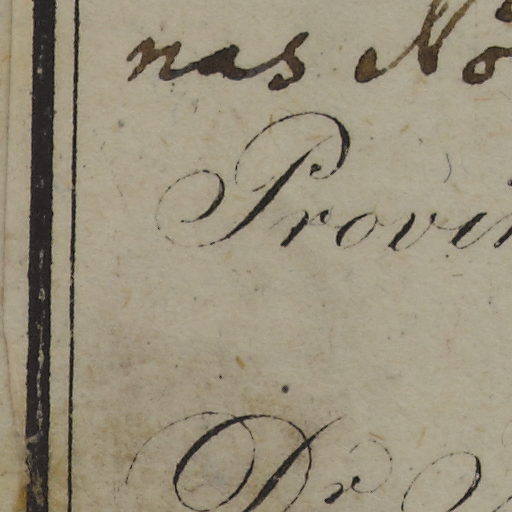 nas No
Provin
Dr